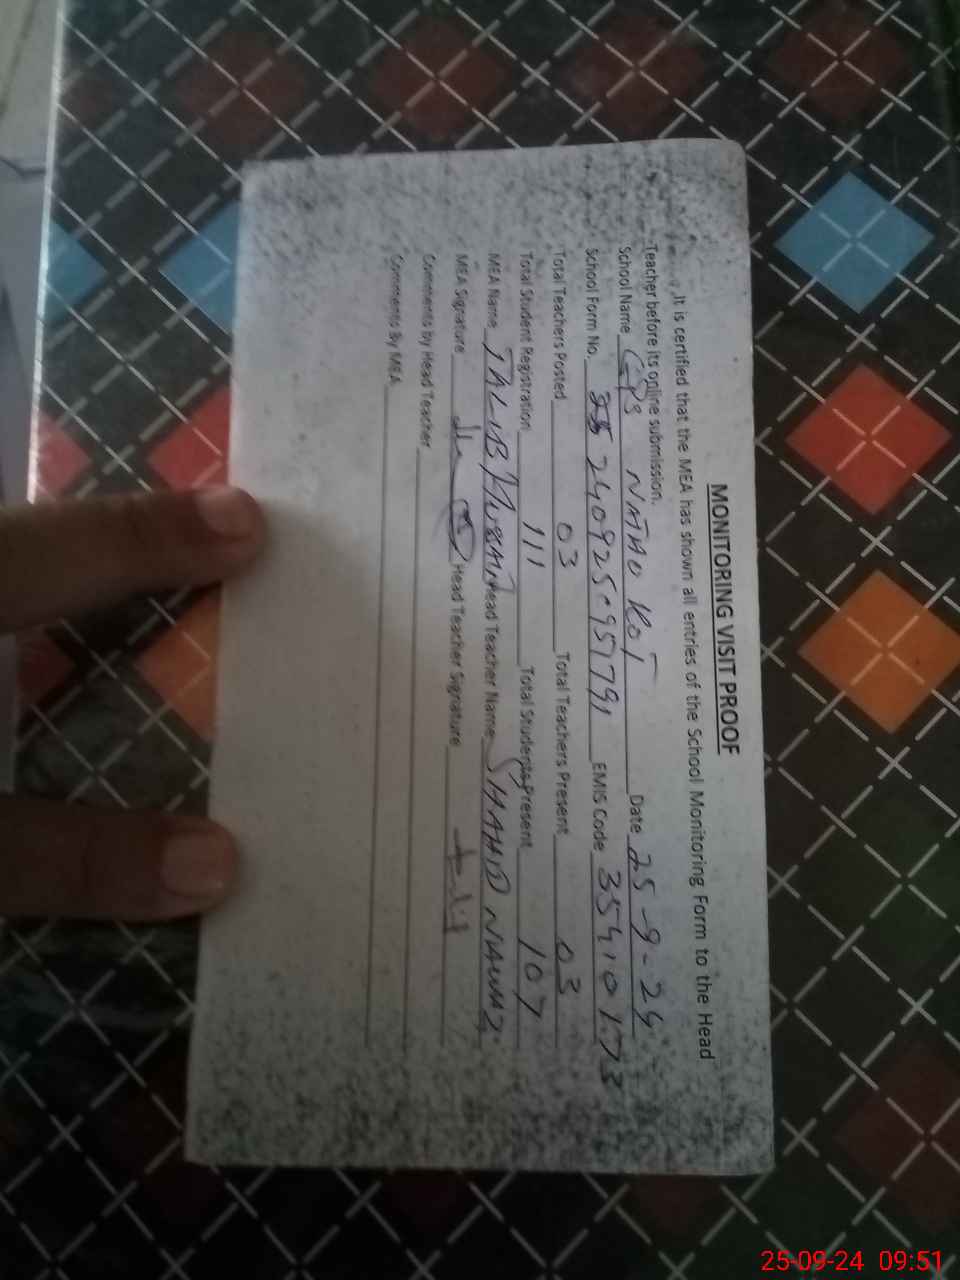 MONITORING VISIT PROOF
It is certified that the MEA has shown all entries of the School Monitoring Form to the Head
Teacher before its online submission.
School Name GPS NATHO KOT Date 25-9-24
School Form No. 240925-951791 EMIS Code 35410173
Total Teachers Posted 03 Total Teachers Present 03
Total Student Registration 111 Total Students Present 107
MEA Name TALIB HUSSAIN Head Teacher Name SHAHID NAWAZ
MEA Signature Head Teacher Signature
Comments by Head Teacher
Comments By MEA
25-09-24 09:51